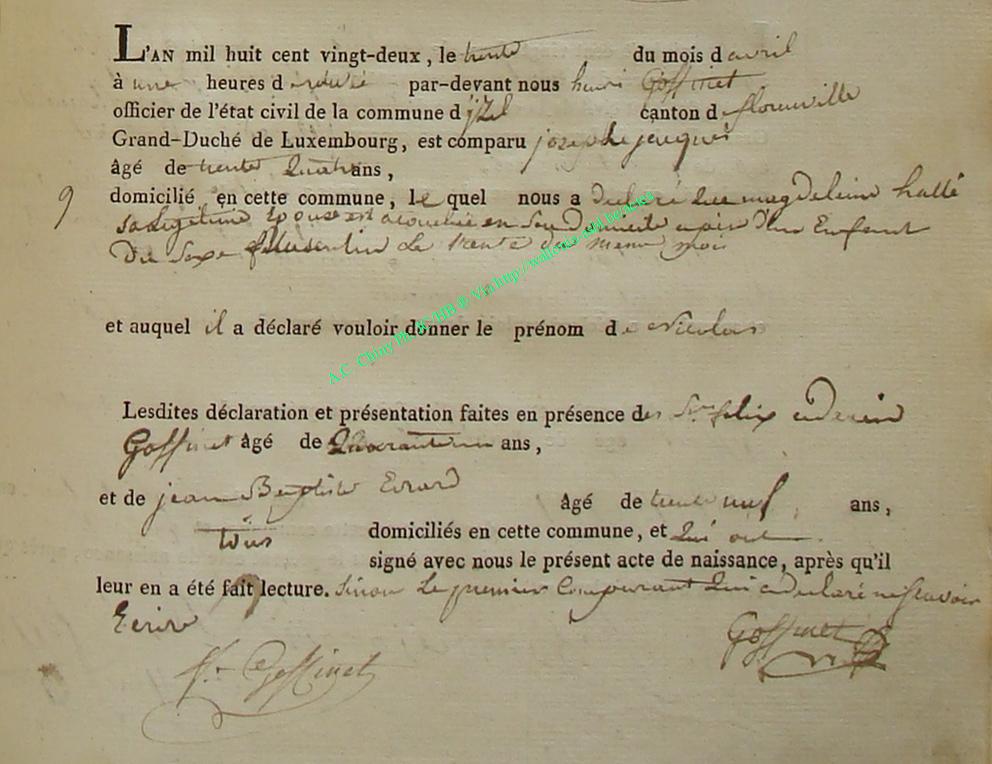 L'AN mil huit cent vingt-deux, le trente du mois d avril
à une heures d par-devant nous henri Goffinet
officier de l'état civil de la commune d jzel canton de florenville
Grand-Duché de Luxembourg, est comparu joseph jacques
âgé de trente Quatre ans,
9 domicilié en cette commune, le quel nous a declaré que magdeleine hallé
sa Legitime Epouse est acouchée en son Domicile d'un Enfant
Du Sexe Le trente du meme mois
et auquel il a déclaré vouloir donner le prénom de Nicolas
Lesdites déclaration et présentation faites en présence des felix
Goffinet âgé de Quarante un ans,
et de jean Baptiste Evrard âgé de trente neuf ans,
tous domiciliés en cette commune, et Qui ont
signé avec nous le présent acte de naissance, après qu'il
leur en a été fait lecture. Sinon Le premier Comparant Qui a declaré ne scavoir
Ecrire
Goffinet
Goffinet
A.C. Chiny